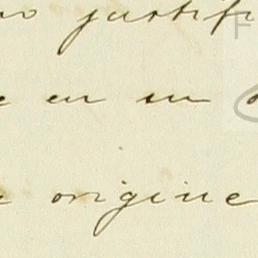 no justifi
e en su
e origine